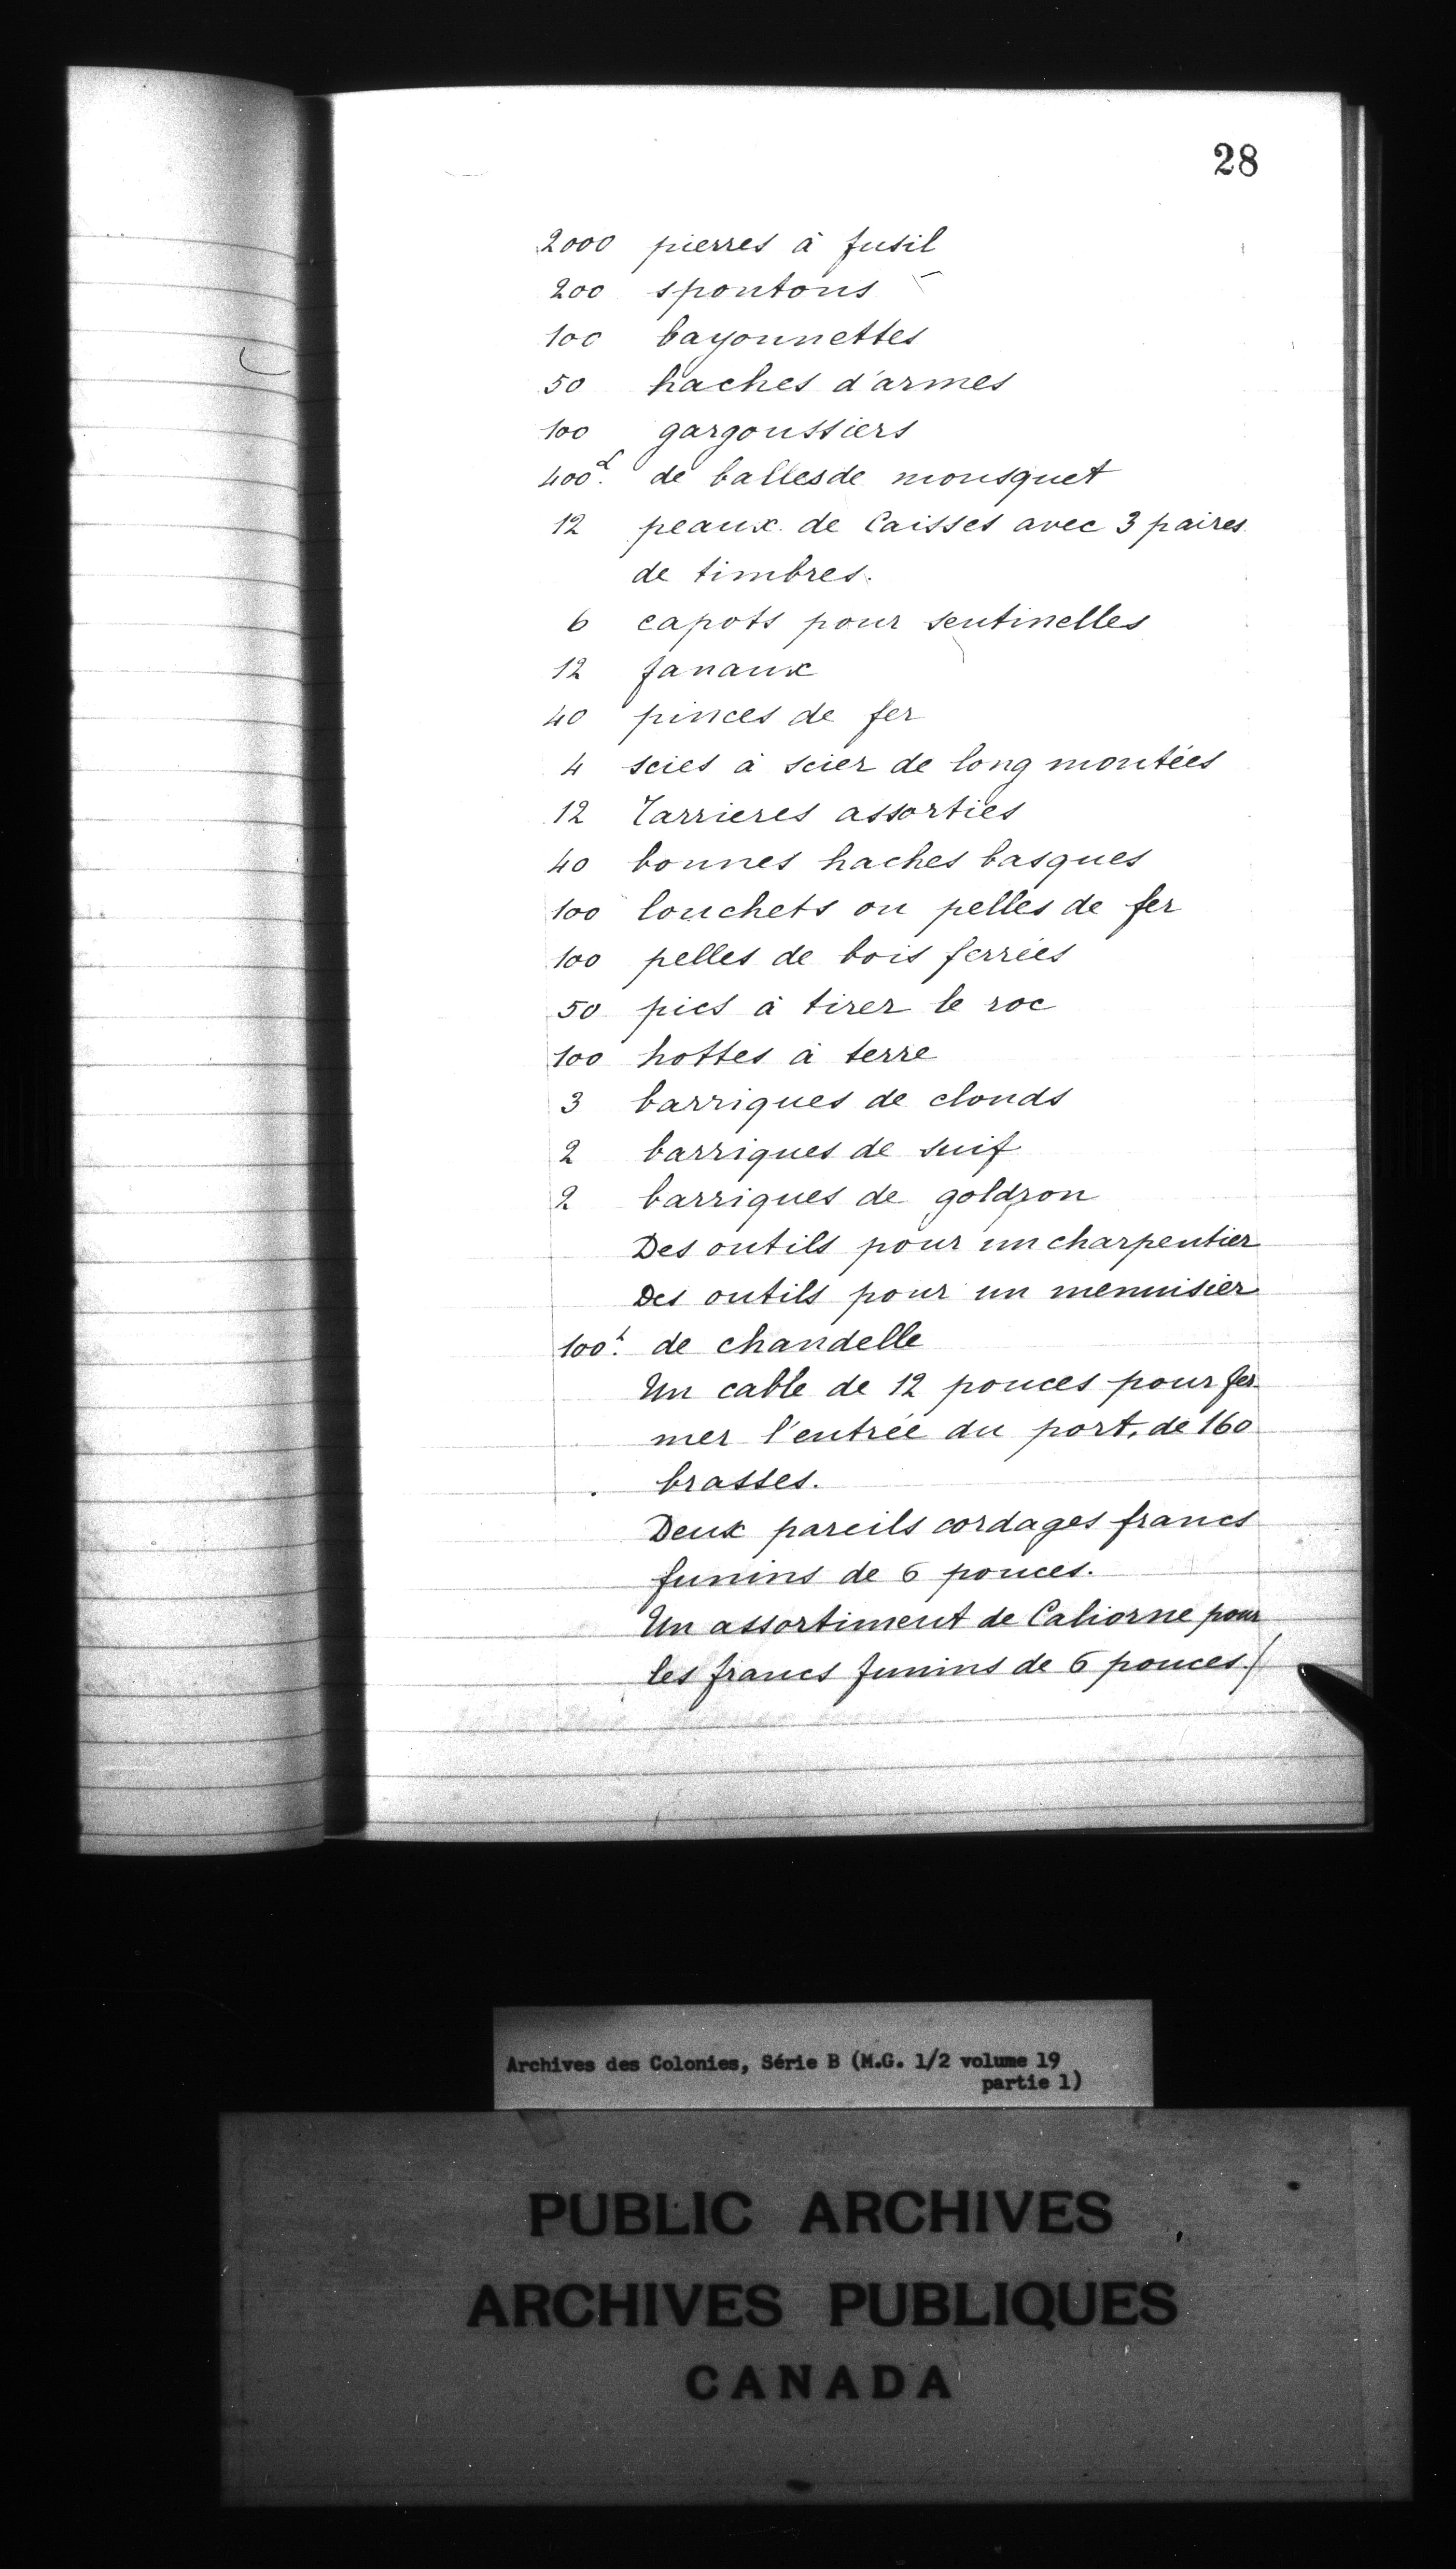 28
2000 pierres à fusil
200 spontons
100 bayonnettes
50 haches d'armes
100 gargoussiers
400ᴸ. de balles de mousquet
12 peaux de Caisses avec 3 paires
de timbres.
6 capots pour sentinelles
12 fanaux
40 pinces de fer
4 scies à scier de long montées
12 Tarrieres assorties
40 bonnes haches basques
100 louchets ou pelles de fer
100 pelles de bois ferrées
50 pics à tirer le roc
100 hottes à terre
3 barriques de clouds
2 barriques de suif
2 barriques de goldron
Des outils pour un charpentier
Des outils pour un menuisier
100ᴸ. de chandelle
Un cable de 12 pouces pour fer-
mer l'entrée du port, de 160
brasses.
Deux pareils cordages francs
funins de 6 pouces.
Un assortiment de Caliorne pour
les francs funins de 6 pouces./
Archives des Colonies, Série B (M.G. 1/2 volume 19
partie 1)
PUBLIC ARCHIVES
ARCHIVES PUBLIQUES
CANADA